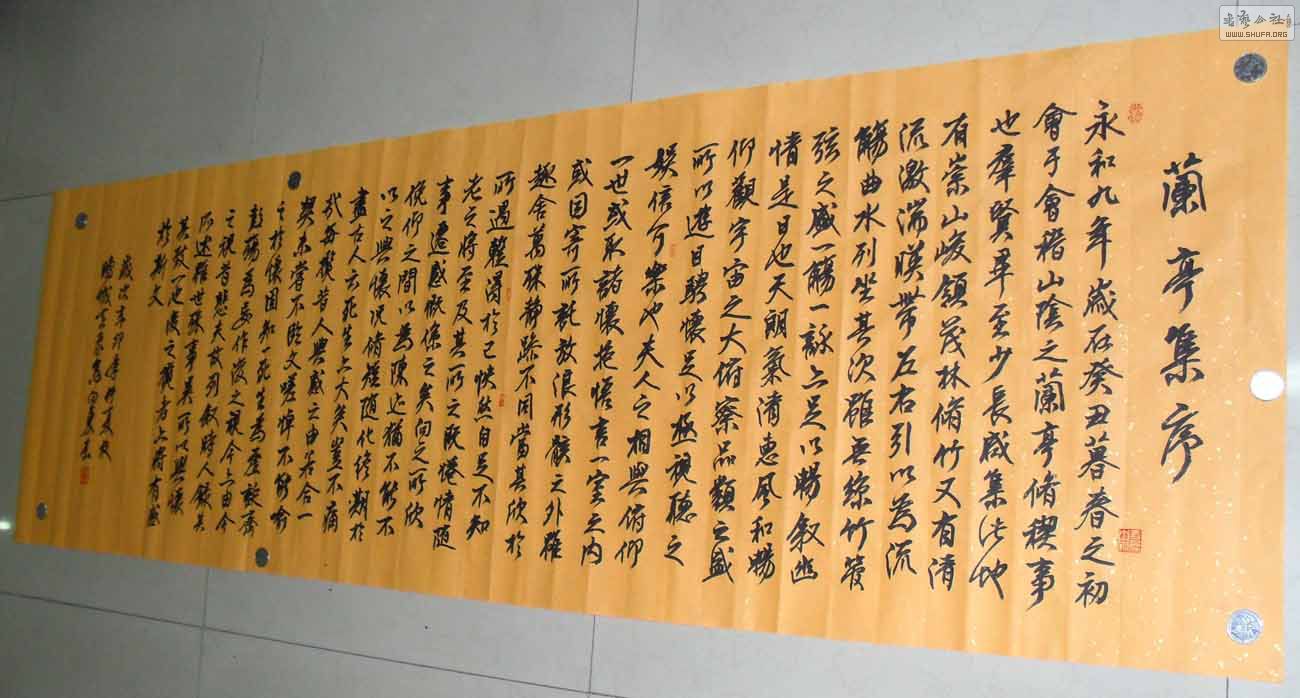 蘭亭集序
永和九年歲在癸丑暮春之初
會于會稽山陰之蘭亭脩稧事
也羣賢畢至少長咸集此地
有崇山峻領茂林脩竹又有清
流激湍暎帶左右引以為流
觴曲水列坐其次雖無絲竹管
弦之盛一觴一詠亦足以暢叙幽
情是日也天朗氣清惠風和暢
仰觀宇宙之大俯察品類之盛
所以遊目騁懷足以極視聽之
娛信可樂也夫人之相與俯仰
一世或取諸懷抱悟言一室之内
或因寄所託放浪形骸之外雖
趣舍萬殊静躁不同當其欣於
所遇蹔得於己快然自足不知
老之將至及其所之既惓情隨
事遷感慨係之矣向之所欣
俛仰之間以為陳迹猶不能不
以之興懷况脩短隨化終期於
盡古人云死生亦大矣豈不痛
哉每攬昔人興感之由若合一
契未嘗不臨文嗟悼不能喻
之於懷固知一死生為虛誕齊
彭殤為妄作後之視今亦由今
之視昔悲夫故列叙時人錄其
所述雖世殊事異所以興懷
其致一也後之攬者亦將有感
於斯文
歲次辛卯年仲夏於
WWW.SHUFA.ORG